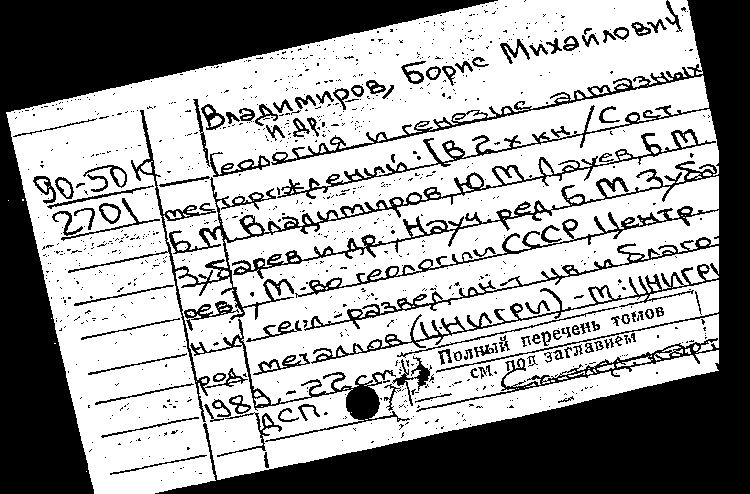 Владимиров, Борис Михайлович
и др.
Геология и генезис алмазных
90-5DK
месторождений: [В 2-х кн./Сост.
2701
Б.М. Владимиров, Ю.М. Дауев, Б.М.
Зубарев и др.; Науч. ред. Б.М. Зуба
рев]; М-во геологии СССР, Центр.
н.-и. геол.-развед. ин-т цв. и благо-
род. металлов (ЦНИГРИ).-М.: ЦНИГРИ
1989.-22 см
Полный перечень томов
см. под заглавием
ДСП.